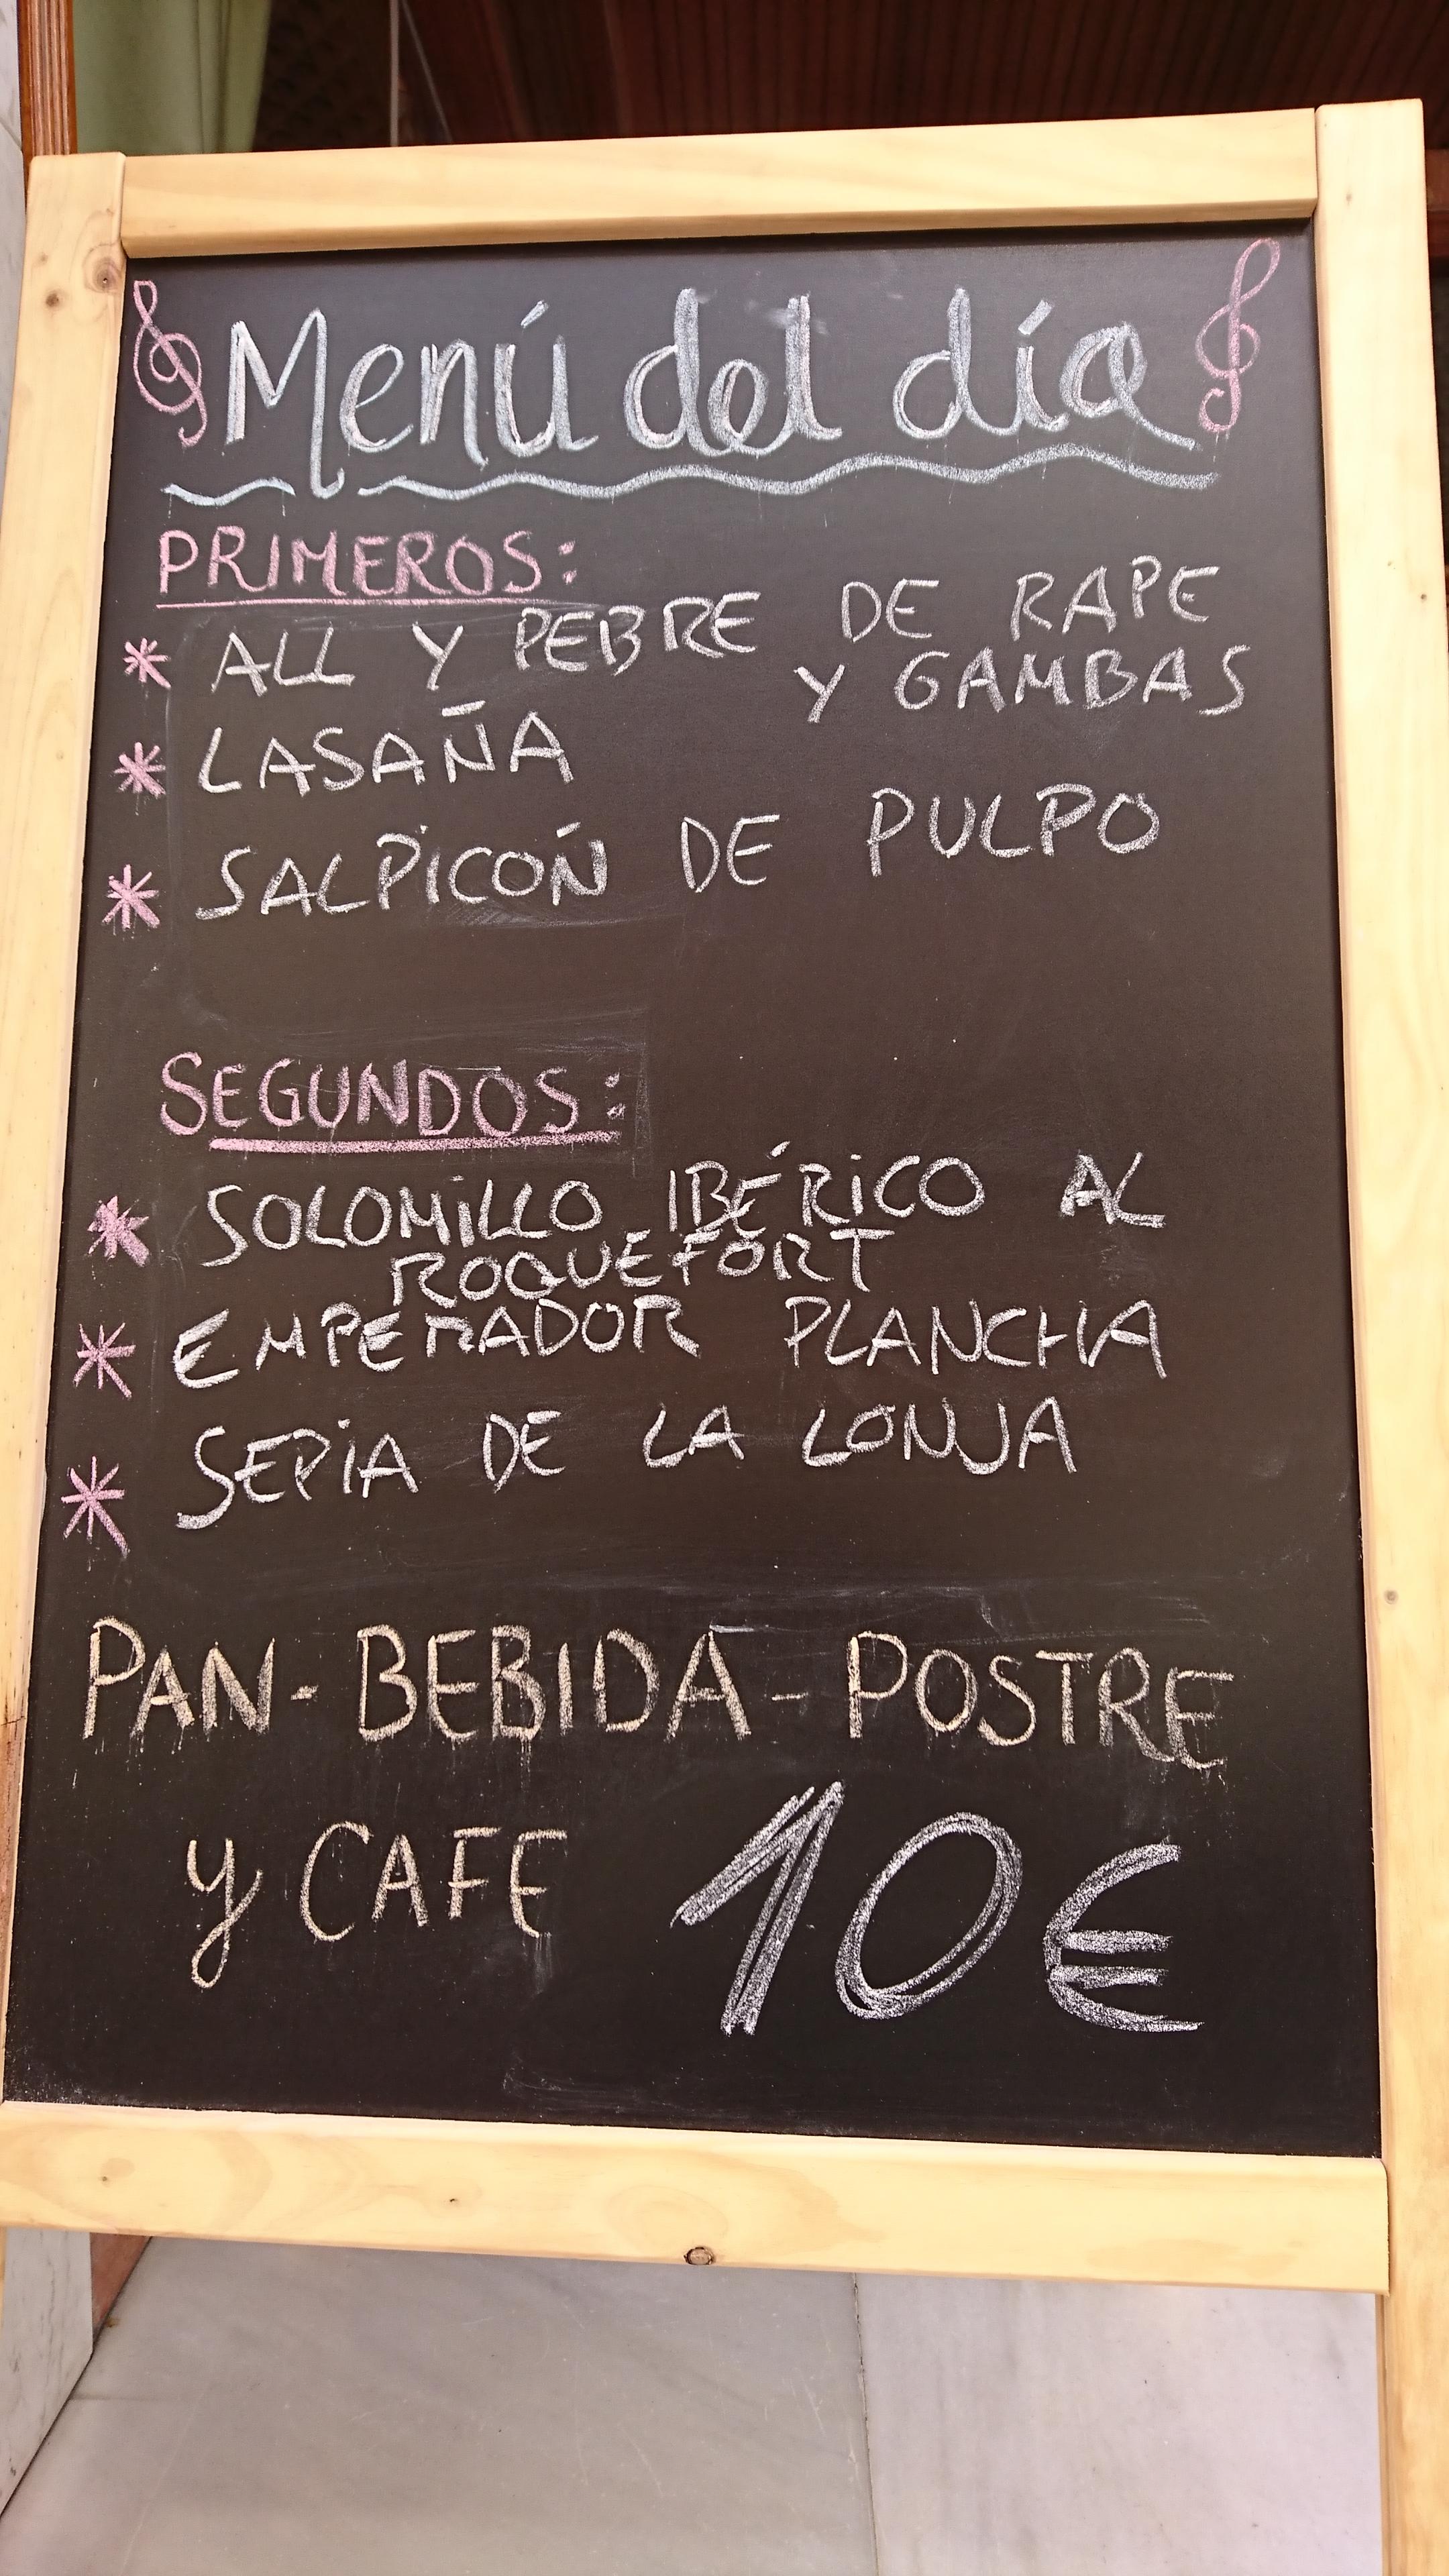 Menú del día
PRIMEROS:
* ALL Y PEBRE DE RAPE
Y GAMBAS
* LASAÑA
* SALPICOŃ DE PULPO
SEGUNDOS:
* SOLOMILLO IBÉRICO AL
ROQUEFORT
* EMPERADOR PLANCHA
* SEPIA DE LA LONJA
PAN - BEBIDA - POSTRE
y CAFE 10€